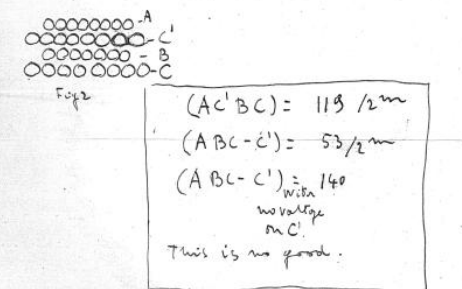 A
C'
B
C
Fig 2
(AC'BC) = 119 /2m
(ABC-C') = 53/2m
(ABC-C') = 140
with
no voltage
on C'.
This is no good.